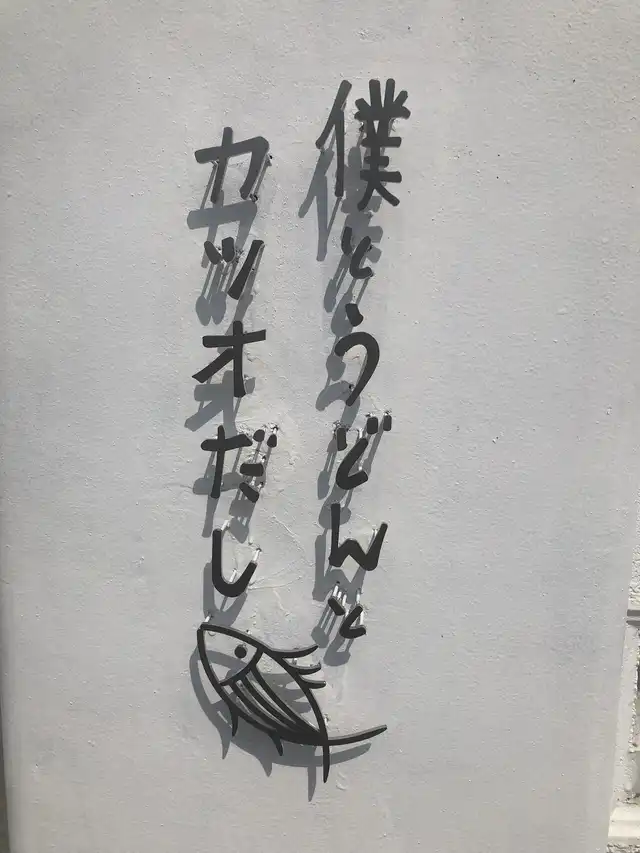 僕とうどんと
カツオだし